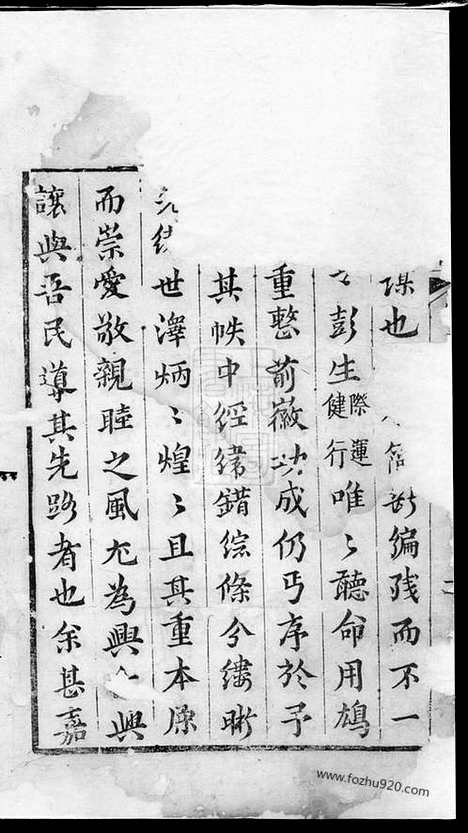 也斷編残而不一
彭生際運健行唯〻聽命用鳩
重整前徽功成仍丐序於予
其帙中經緯錯綜條分縷晰
世澤炳〻煌〻且其重本源
而崇愛敬親睦之風尤為興與
讓與吾民導其先路者也余甚嘉
www.fozhu920.com